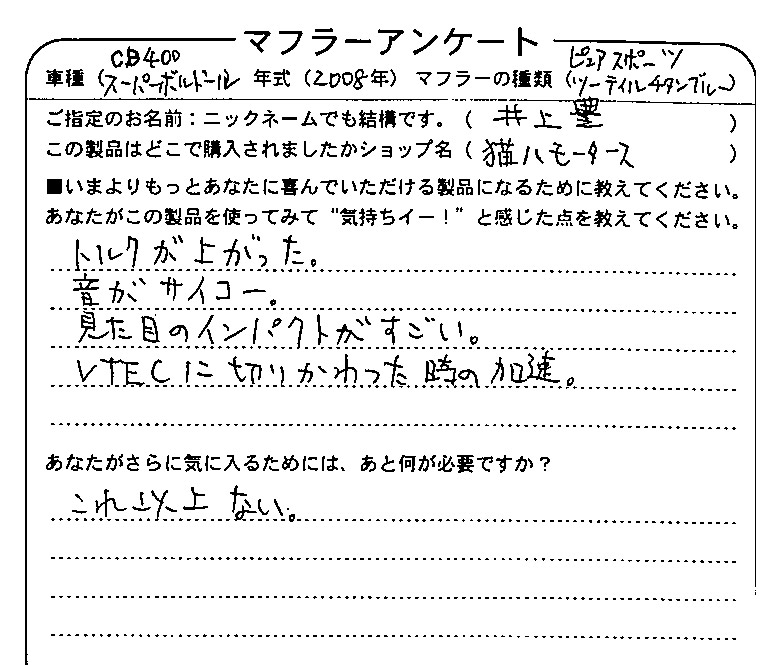 マフラーアンケート
CB400 ピュアスポーツ
車種（スーパーボルドール 年式（2008年）マフラーの種類（ツーテイルチタンブルー）
ご指定のお名前：ニックネームでも結構です。（ 井上豊 ）
この製品はどこで購入されましたかショップ名（ 猫ハモータース ）
■いまよりもっとあなたに喜んでいただける製品になるために教えてください。
あなたがこの製品を使ってみて“気持ちイー！”と感じた点を教えてください。
トルクが上がった。
音がサイコー。
見た目のインパクトがすごい。
VTECに切りかわった時の加速。
あなたがさらに気に入るためには、あと何が必要ですか？
これ以上ない。